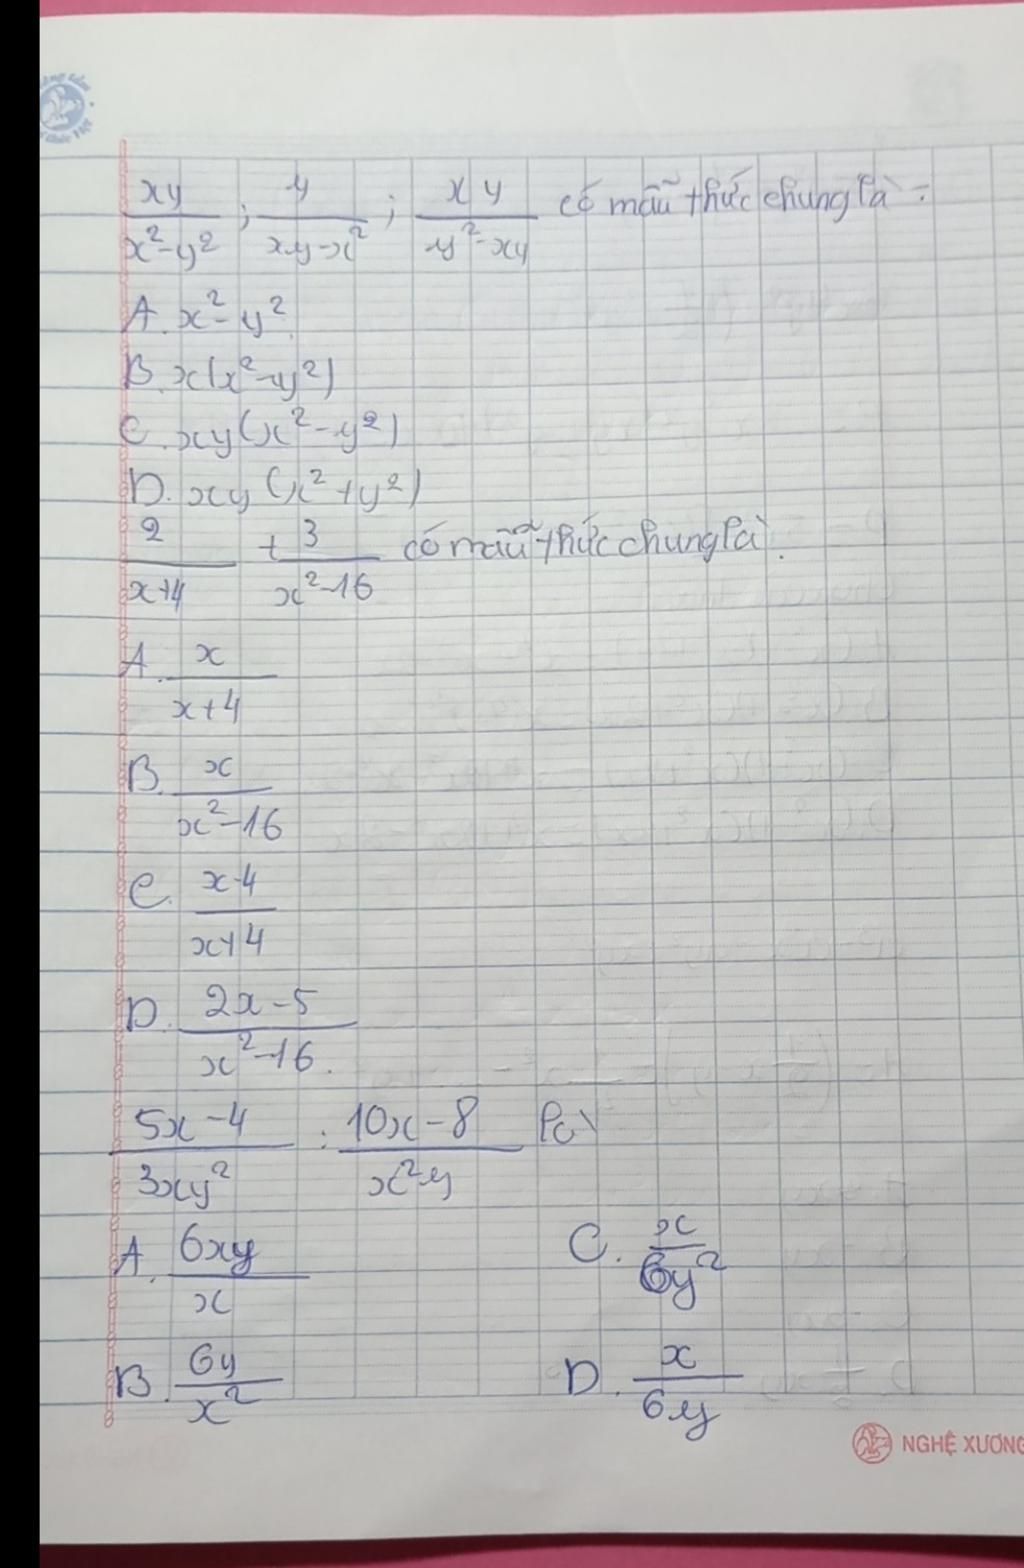 xy/x²-y² ; y/xy-x² ; xy/y²-xy có mẫu thức chung là:
A. x²-y²
B. x(x²-y²)
C. xy(x²-y²)
D. xy(x²+y²)
2/x+4 + 3/x²-16 có mẫu thức chung là.
A. x/x+4
B. x/x²-16
C. x-4/x+4
D. 2x-5/x²-16.
5x-4/3xy² : 10x-8/x²y là
A. 6xy/x C. x/6y²
B. 6y/x² D. x/6y
NGHỆ XƯƠNG